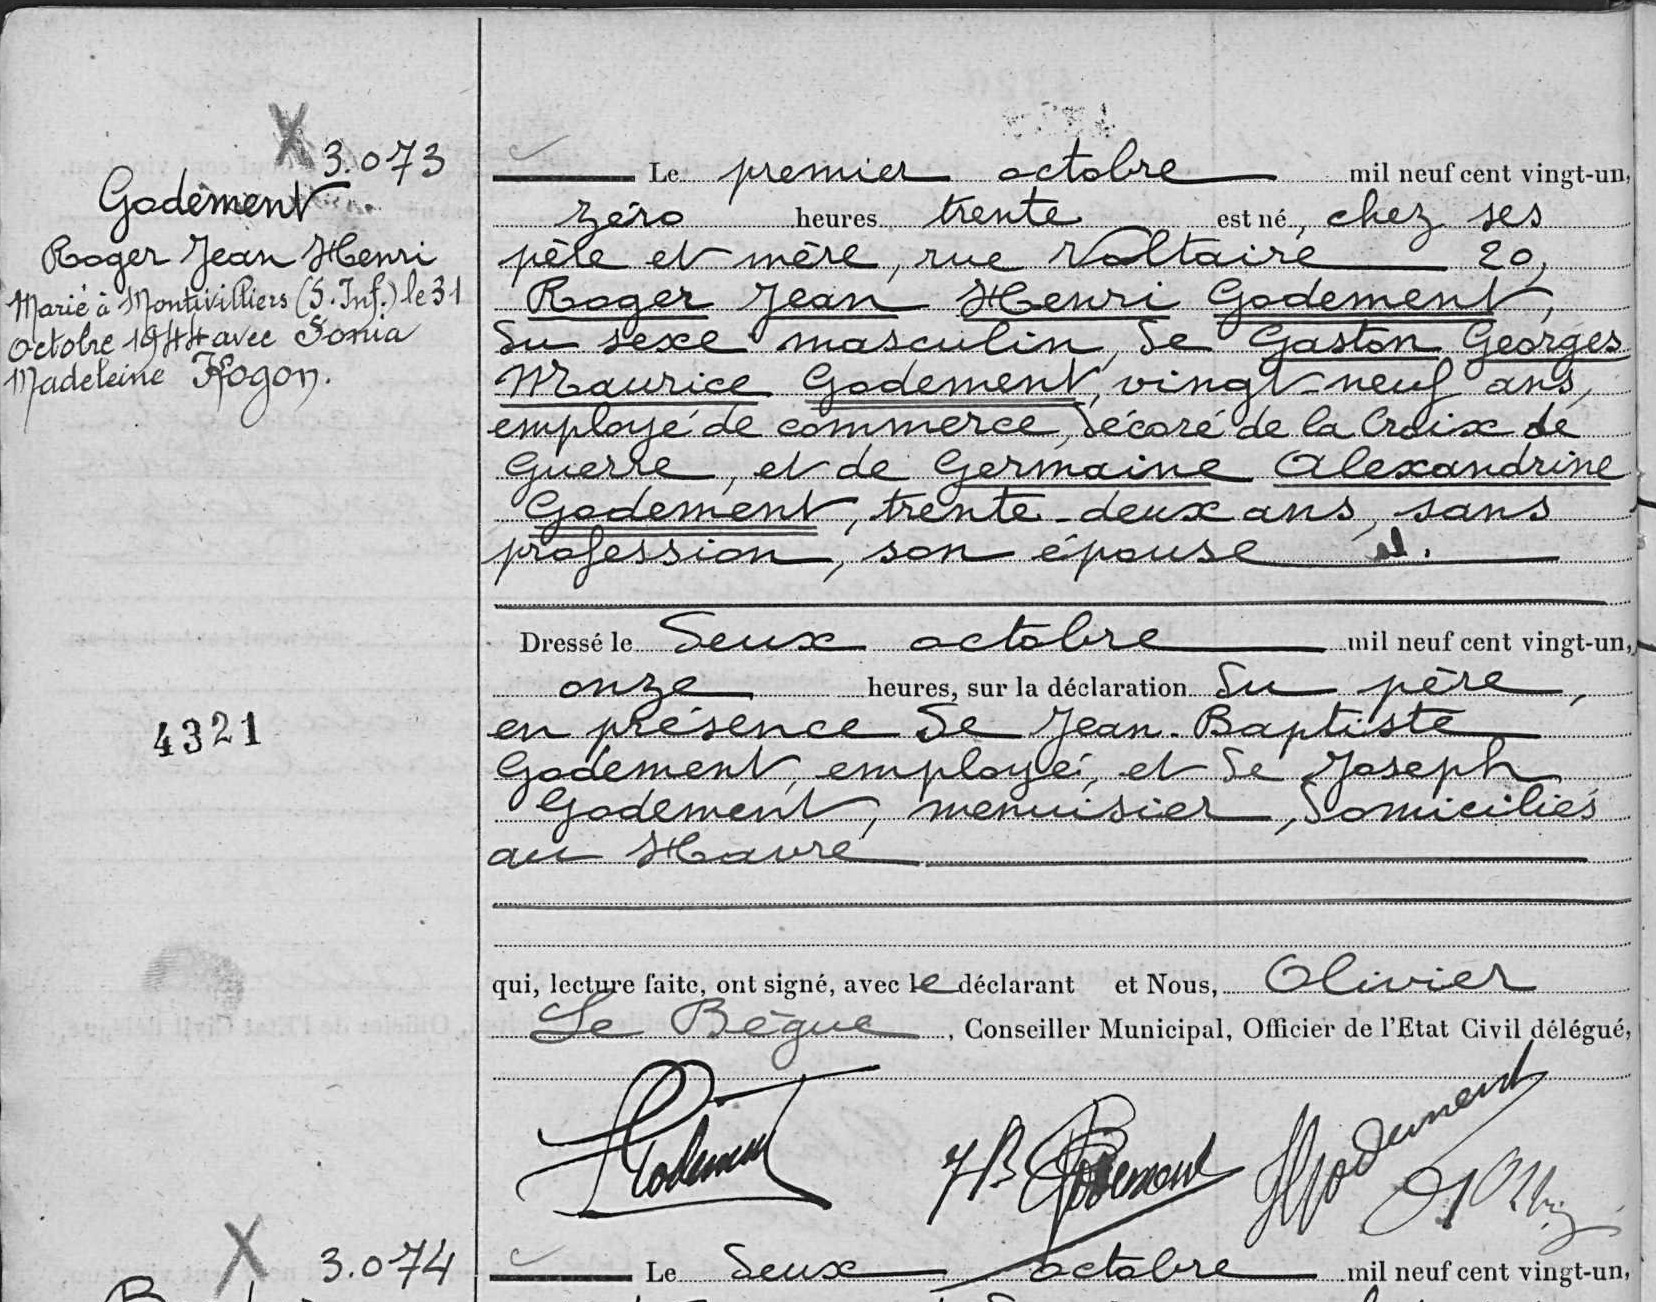 3.073
Godement
Roger Jean Henri
Marié à Montivilliers (S. Inf.) le 31
octobre 1944 avec Sonia
Madeleine Kogon.
4321
Le premier octobre mil neuf cent vingt-un,
zéro heures trente est né, chez ses
père et mère, rue Voltaire 20,
Roger Jean Henri Godement,
du sexe masculin, de Gaston Georges
Maurice Godement, vingt-neuf ans,
employé de commerce, décoré de la Croix de
Guerre, et de Germaine Alexandrine
Godement, trente-deux ans, sans
profession, son épouse.
Dressé le deux octobre mil neuf cent vingt-un,
onze heures, sur la déclaration du père,
en présence de Jean-Baptiste
Godement, employé, et de Joseph
Godement, menuisier, domiciliés
au Havre
qui, lecture faite, ont signé, avec le déclarant et Nous, Olivier
Le Bègue, Conseiller Municipal, Officier de l'Etat Civil délégué,
Godement JB Godement Godement
3.074
Le deux octobre mil neuf cent vingt-un,